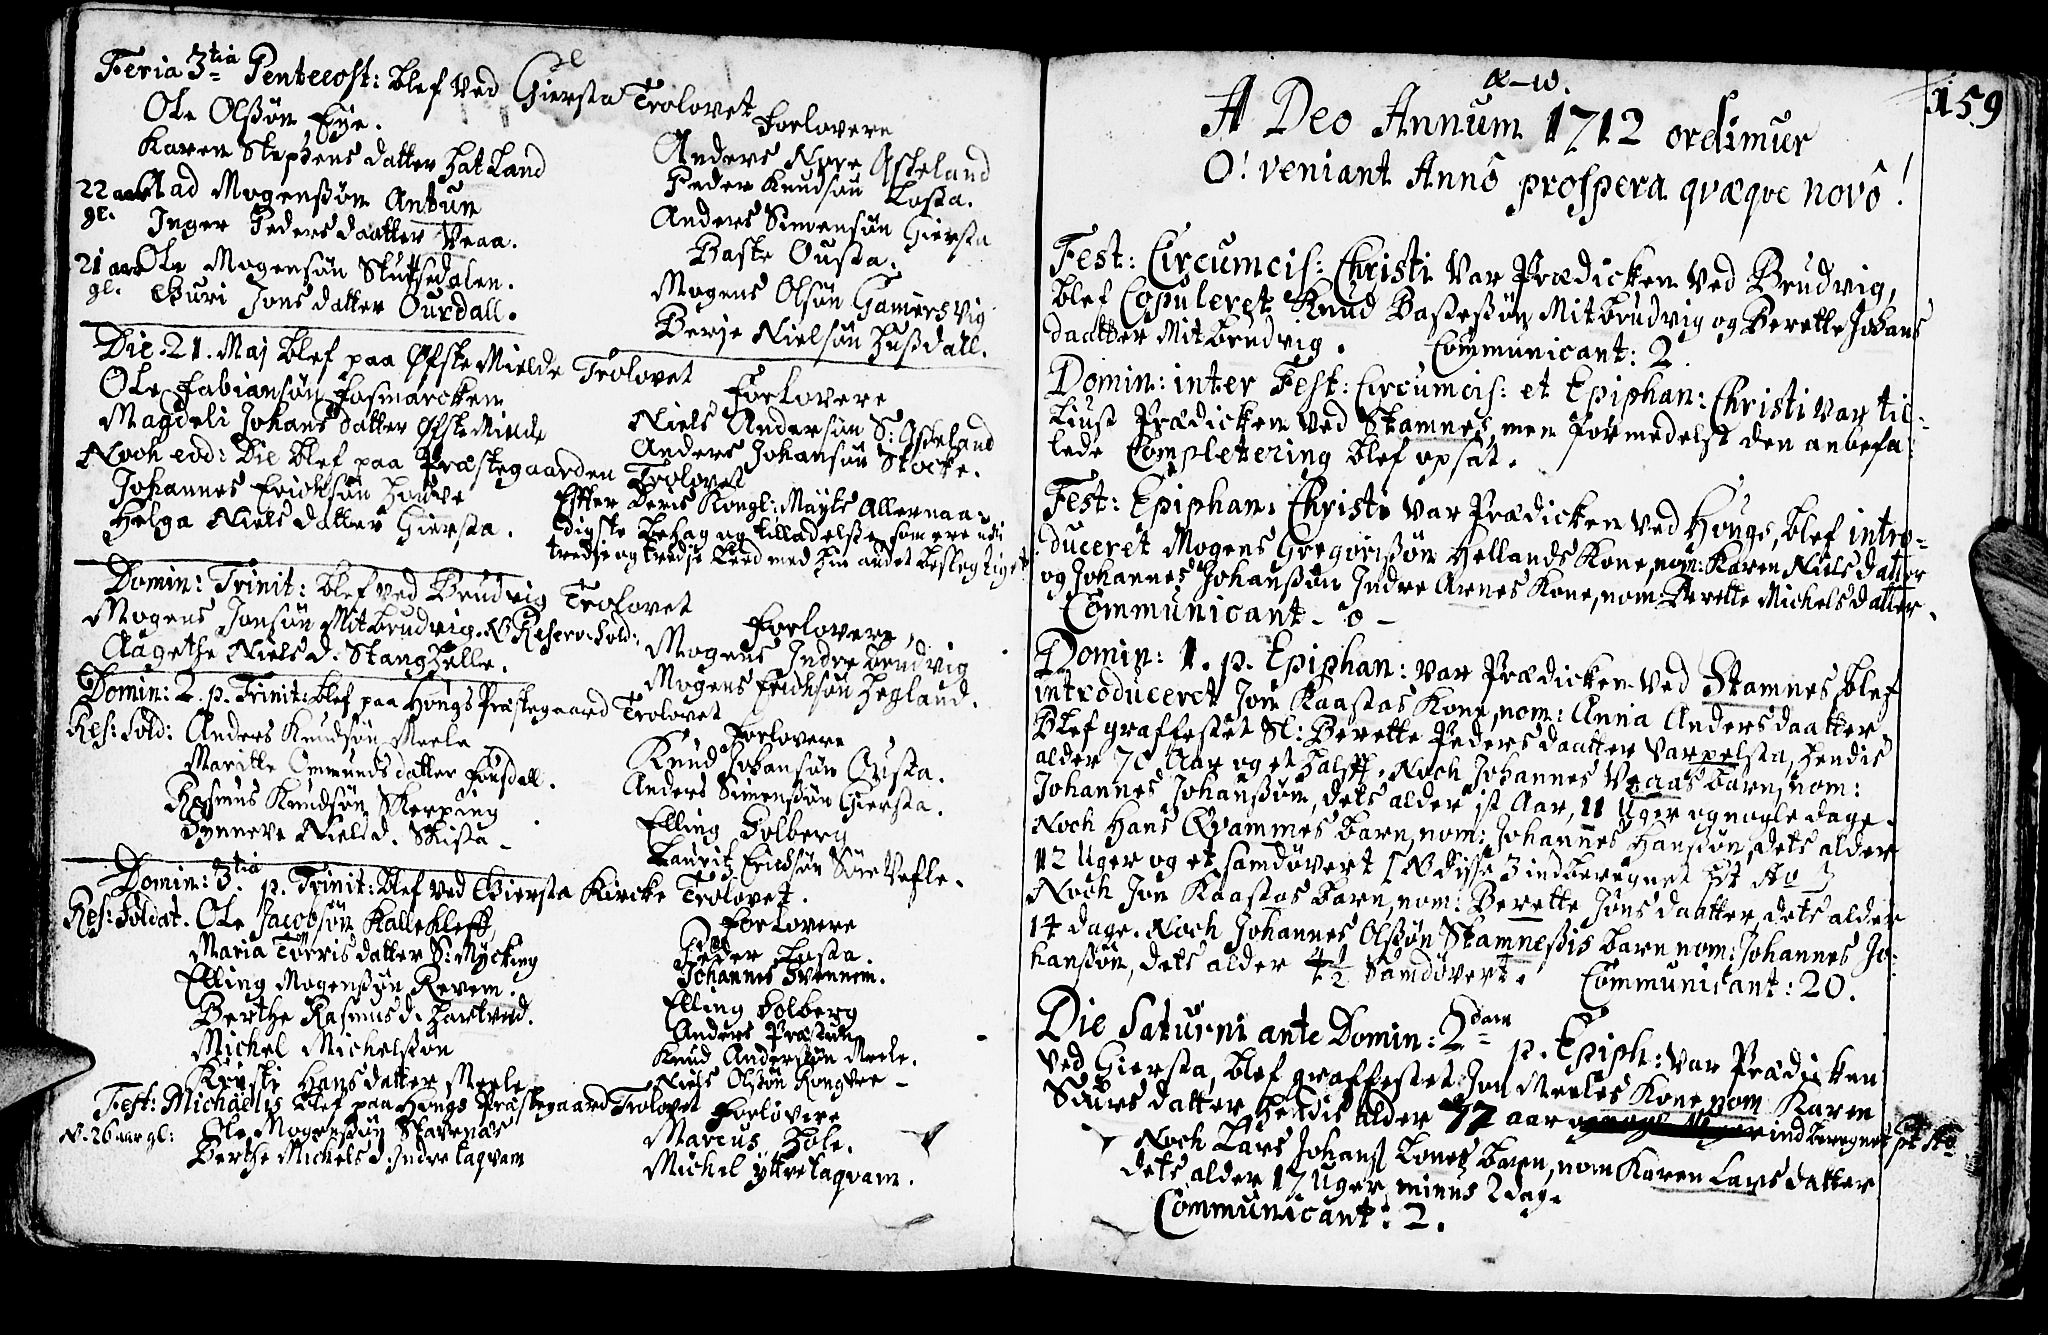 Feria 3tia Pentecost: blef ved Giersta Trolovet
Ole Olssøn Eye.
Karen Stephens datter Hatland
Forlovere
Anders Nore Askeland
Peder Knudsøn Losta.
22 aar gl. Aad Mogenssøn Antun
Inger Peders daatter Veaa.
Anders Simensøn Giersta
Baste Ousta.
21 aar gl. Ole Mogensøn Skuttsedalen.
Guri Jons datter Ourdall.
Mogens Olsøn Gamersvig
Berje Nielsøn Hussdall.
Die. 21. Maj blef paa Øfste Mielde Trolovet
Ole Fabiansøn Fosmarcken
Magdeli Johans datter Øfste Mielde
Forlovere
Niels Andersøn S: Askeland
Anders Johansøn Stocke.
Noch eod: Die blef paa Præstegaarden Trolovet
Johannes Erichsøn Houve
Helga Niels datter Giersta.
Efter Deris Kongl: Mayts Allernaa-
digste Behag og tilladelsse, som ere udi
tredje og tredje Leed med hin andet beslegtiget
Domin: Trinit: blef ved Brudvig Trolovet
Mogens Jonsøn Mitbrudvig. NB Reserv. Sold:
Aagethe Niels d. Stanghelle.
Forlovere
Mogens Indre Brudvig
Mogens Erichsøn Hegland.
Domin: 2. p. Trinit: blef paa Hougs Præstegaard Trolovet
Res: Sold: Anders Knudsøn Meele
Maritte Ommunds datter Fousdall.
Rasmus Knudsøn Skerping
Synneve Niels d. Skista
Forlovere
Knud Johansøn Ousta.
Anders Simenssøn Giersta.
Elling Solberg
Lauritz Erichsøn Søre Vefle.
Domin: 3tia p. Trinit: blef ved Giersta Kircke Trolovet.
Res: Soldat. Ole Jacobsøn Kallekleft
Maria Torris datter S: Mycking
Elling Mogenssøn Revem.
Berthe Rasmus d. Hartved.
Michel Michelssøn
Kristi Hans datter Meele
Forlovere
Peder Losta.
Johannes Tvennem.
Elling Solberg
Anders Præstun
Knud Anderssøn Meele.
Niels Olssøn Rongvee
Fest: Michaelis blef paa Hougs Præstegaard Trolovet
N. 26 aar gl: Ole Mogenssøn Stavenæs
Berthe Michels d. Indre Taqvam
Forlovere
Marcus Hole.
Michel yttre Taqvam.
159
α-ω.
A Deo Annum 1712 ordimur
O! veniant Annô prospera qvæqve novô!
Fest: Circumcis: Christi Var Prædicken ved Brudvig,
blef Copuleret Knud Bassessøn Mitbrudvig og Berette Johans
daatter Mitbrudvig. Communicant: 2
Domin: inter Fest: Circumcis: et Epiphan: Christi var til-
liust Prædicken ved Stamnes, men formedelst den anbefa-
lede Complettering blef opsat.
Fest: Epiphan: Christi var Prædicken ved Hougs, blef intro-
duceret Mogens Gregorissøn Hellands Kone, nom: Karen Niels datter
og Johannes Johanssøn Indre Arnes Kone, nom: Berette Michels datter.
Communicant - 0 -
Domin: 1. p. Epiphan: var Prædicken ved Stamnes, blef
introduceret Jon Kaastas Kone, nom: Anna Anders daatter
Blef graffestet Sl: Berette Peders daatter Varpelsta, hendis
alder 70 Aar og et halft. Noch Johannes Veaas barn, nom:
Johannes Johanssøn, dets alder ist Aar, 11 Uger og nogle dage.
Noch Hans Qvammes barn, nom: Johannes Hanssøn, dets alder
12 Uger og et samdøvert [NB disse 3 indberegnet pt Ao ]
Noch Jon Kaastas barn, nom: Berette Jons daatter, dets alder
14 dage. Noch Johannes Olssøn Stamnessis barn nom: Johannes Jo-
hanssøn, dets alder 4 1/2 Samdøvert. Communicant: 20.
Die Saturni ante Domin: 2dam p. Epiph: var Prædicken
ved Giersta, blef graffestet Jon Meeles Kone, nom Karen
Siurs datter, hendis alder 77 aar indberegnet pt Ao
Noch Lars Johans Lones barn, nom Karen Lars datter
dets alder 17 Uger minus 2 dage
Communicant: 2.